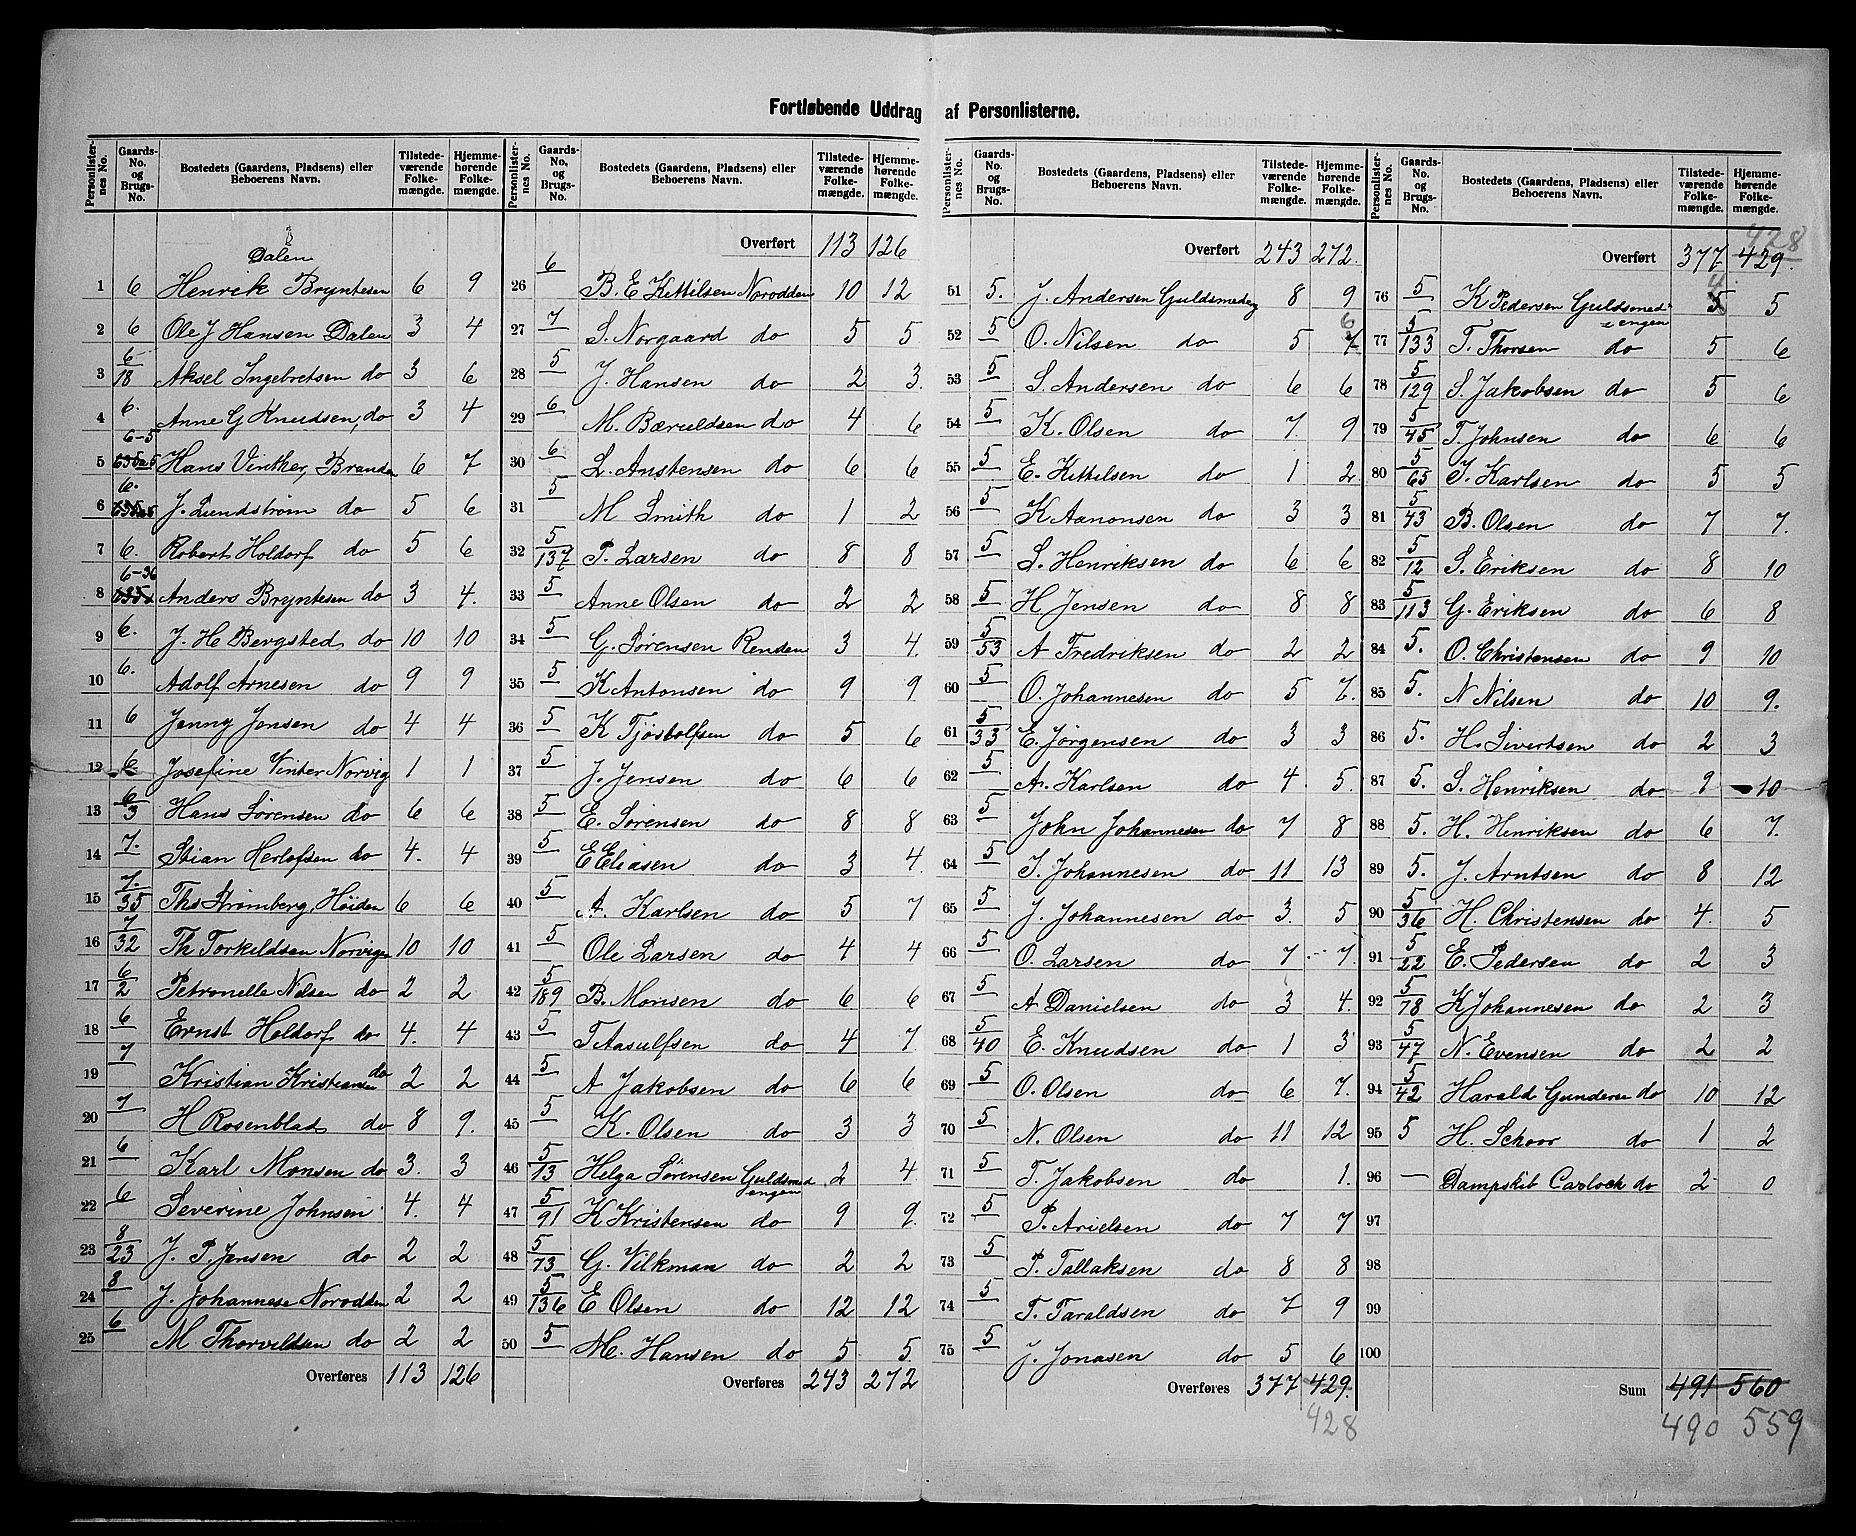 Fortløbende Uddrag af Personlisterne.
Personlisternes No. | Gaards-No. og Brugs-No. | Bostedets (Gaardens, Pladsens) eller Beboerens Navn. | Tilstedeværende Folkemængde. | Hjemmehørende Folkemængde.
Dalen
1 6 Henrik Bryntesen 6 9
2 6 Ole J Hansen Dalen 3 4
3 6/18 Aksel Ingebretsen do 3 6
4 6. Anne G Knudsen, do 3 4
5 6-5 Hans Vinther, Branden 6 7
6 6. J. Lundstrøm do 5 6
7 6. Robert Holdorf do 5 6
8 6-36 Anders Bryntesen do 3 4.
9 6. J. H Bergsted do 10 10
10 6. Adolf Arnesen do 9 9
11 6 Jenny Jensen do 4 4
12 6 Josefine Vinter Norvig 1 1
13 6/3 Hans Sørensen do 6 6
14 7. Stian Herlofsen do 4. 4
15 7./35 Ths Strømberg, Høiden 6 6
16 7/32 Th Torkildsen Norvigen 10 10
17 6/2 Petronelle Nilsen do 2 2
18 6 Ernst Holdorf do 4. 4
19 7 Kristian Kristiansen do 2 2
20 7 H Rosenblad do 8 9.
21 6 Karl Monsen do 3. 3
22 6 Severine Johnsen 4. 4
23 8/23 J. P. Jensen do 2 2
24 8 J. Johannese Norodden 2 2
25 6 M Thorvildsen do 2 2
Overføres 113 126
Overført 113 126
26 6 B. E Kittilsen Norodden 10 12
27 7 S. Norgaard do 5 5
28 5 J. Hansen do 2 3.
29 6 M. Bæruldsen do 4 6
30 6 L. Anstensen do 6 6
31 5 M Smith do 1 2
32 5/137 P. Larsen do 8 8
33 5 Anne Olsen do 2 2
34 5 G. Sørensen Renden 3 4.
35 5 K Antonsen do 9 9
36 5 K Tjøstolfsen do 5 6
37 5 J. Jensen do 6 6
38 5 E. Sørensen do 8 8
39 5 E Eliasen do 3 4.
40 5 A. Karlsen do 5 7
41 5 Ole Larsen do 4 4
42 5/189 B. Monsen do 6 6
43 5 T Aasulfsen do 4 7.
44 5 A Jakobsen do 6 6
45 5 K. Olsen do 3 3
46 5/13 Helga Sørensen Guldsmedengen 2 4.
47 5/91 K Kristensen do 9 9.
48 5/73 G. Vilkman do 2 2
49 5/136 E Olsen do 12 12
50 5 M. Hansen do 5 5
Overføres 243 272
Overført 243 272.
51 5. J. Andersen Guldsmedeng 8 9
52 5 O. Nilsen do 5 7 6
53 5 S. Andersen do 6 6
54 5 K. Olsen do 7. 9
55 5 E. Kittilsen do 1 2
56 5 K Aanonsen do 3 3
57 5 S. Henriksen do 6 6
58 5 H Jensen do 8 8
59 5/53 A Fredriksen do 2 2
60 5 O. Johannesen do 5 7.
61 5/33 E. Jørgensen do 3 3
62 5 A. Karlsen do 4. 5.
63 5 John Johannesen do 7 8
64 5 I. Johannesen do 11 13
65 5 J. Johannesen do 3. 5
66 5 O. Larsen do 7 7.
67 5 A Danielsen do 3 4.
68 5/40 E. Knudsen do 1 3
69 5 O. Olsen do 6 7.
70 5 N. Olsen do 11 12
71 5 T. Jakobsen do 1.
72 5 P. Arielsen do 7 7
73 5 P. Tallaksen do 8 8
74 5 T. Taraldsen do 7 9
75 5 J. Jonasen do 5 6
Overføres 377 429.
428
428
Overført 377 429.
76 5 K Pedersen Guldsmedengen 5 4. 5
77 5/133 T. Thorsen do 5 6
78 5/129 S. Jakobsen do 5 6
79 5/45 T. Johnsen do 6 6
80 5/65 I. Karlsen do 5 5
81 5/43 B. Olsen do 7 7.
82 5/12 S. Eriksen do 8 10
83 5/113 G. Eriksen do 6 8
84 5. O. Christensen do 9 10
85 5. N Nilsen do 10 9.
86 5. H. Sivertsen do 2 3
87 5. S. Henriksen do 9 10
88 5. H. Henriksen do 6 7.
89 5. J. Arntsen do 8 12
90 5/36 H. Christensen do 4. 5
91 5/22 E. Pedersen do 2 3
92 5/78 K Johannesen do 2 3
93 5/47 N. Evensen do 2 2
94 5/42 Harald Gunderse do 10 12
95 5 H. Schoor do 1 2
96 — Dampskib Carloch do 2 0
97
98
99
100
Sum 491 560
490 559